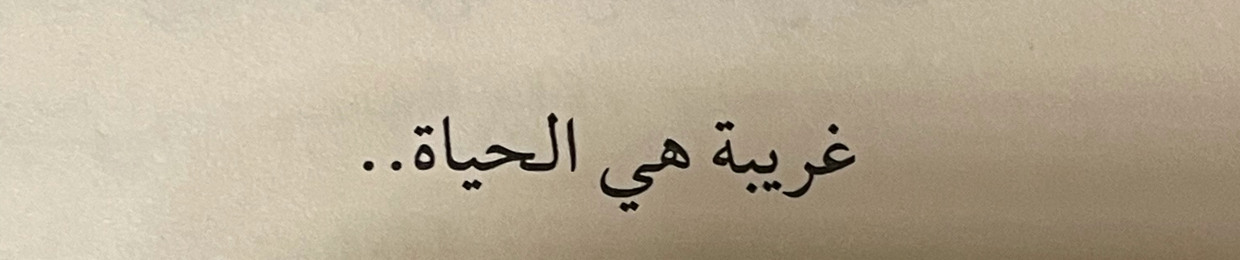 غريبة هي الحياة..